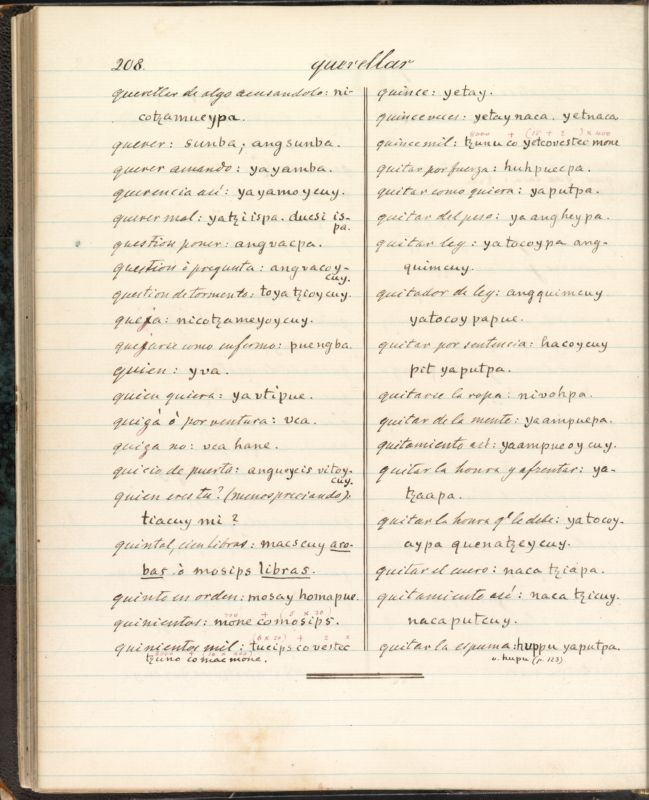 208.
querellar
querellar de algo acusandolo: ni-
cotzamueypa.
querer: sunba; angsunba.
querer amando: yayamba.
querencia asi: yayamoycuy.
querer mal: yatzi ispa. duesi is-
pa.
question poner: angvacpa.
question ó pregunta: angvacoy-
cuy.
question de tormento: toyatzioycuy.
quexa: nicotzameyoycuy.
quejarse como enfermo: puengba.
quien: yva.
quien quiera: yavtipue.
quizá ó por ventura: vca.
quiza no: vca hane.
quicio de puerta: angueycis vitoy-
cuy.
quien eres tu? (menospreciando):
tiacuy mi?
quintal, cien libras: macscuy aro-
bas ò mosips libras.
quinto en orden: mosay homapue.
+ (5 x 20)
quinientos: mone comosips.
(6 x 20) + 2 x
quinientos mil: tucips co vestec
tzuno comac mone.
quince: yetay.
quince veces: yetay naca. yetnaca
8000 + (15 + 2) x 400
quince mil: tzunu co yetcovestec mone
quitar por fuerza: huhpuecpa.
quitar como quiera: yaputpa.
quitar del peso: yaangheypa.
quitar ley: yatocoypa ang-
quimcuy.
quitador de ley: angquimcuy
yatocoypapue.
quitar por sentencia: hacoycuy
pit yaputpa.
quitarse la ropa: nivohpa.
quitar de la mente: yaampuepa.
quitamiento asi: yaampueoycuy.
quitar la honra y afrentar: ya-
tzaapa.
quitar la honra q.e le debe: yatocoy-
aypa quenatzeycuy.
quitar el cuero: naca tziapa.
quitamiento asi: naca tzicuy.
nacaputcuy.
quitar la espuma: huppu yaputpa.
v. hupu (p. 123)